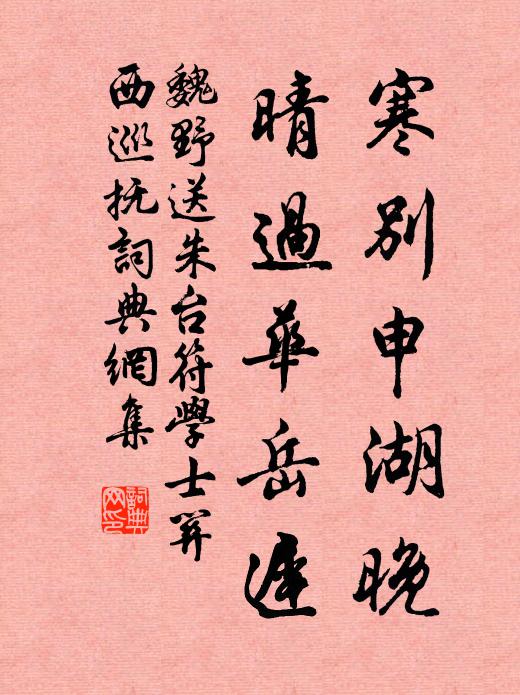 寒別申湖晚
晴過華岳遲
魏野送朱台符學士關
西巡撫詞典網集
詞典网印